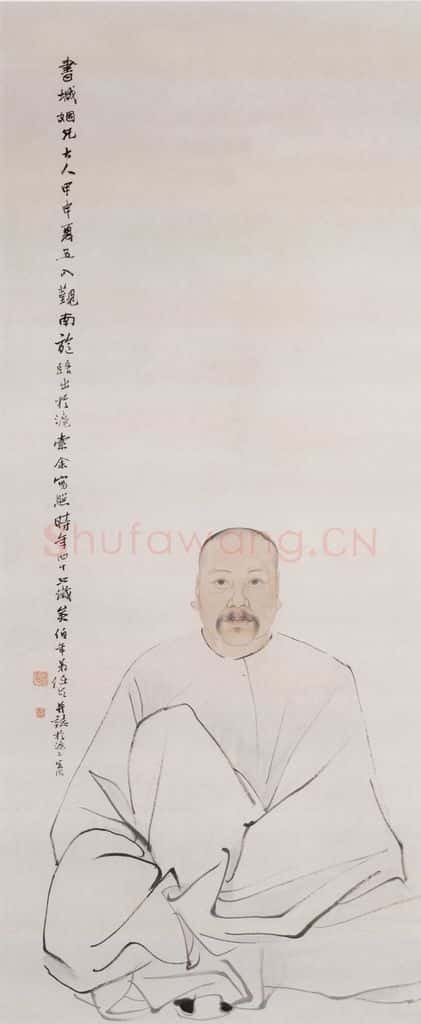 書城姻兄大人甲申夏五入覲南旋路出於滬索余寫照時年四十七歲矣伯年弟任頤并誌於滬上寓次
Shufawang.CN